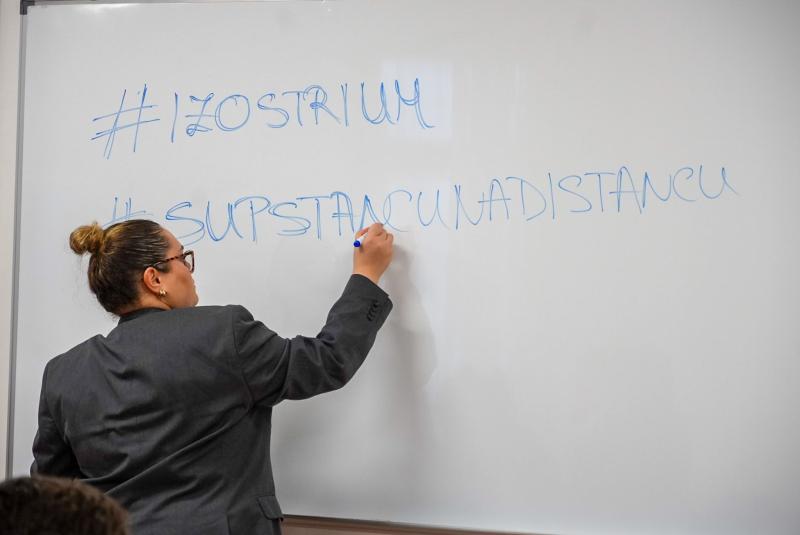 #IZOSTRIUM
#SUPSTANCUNADISTANCU